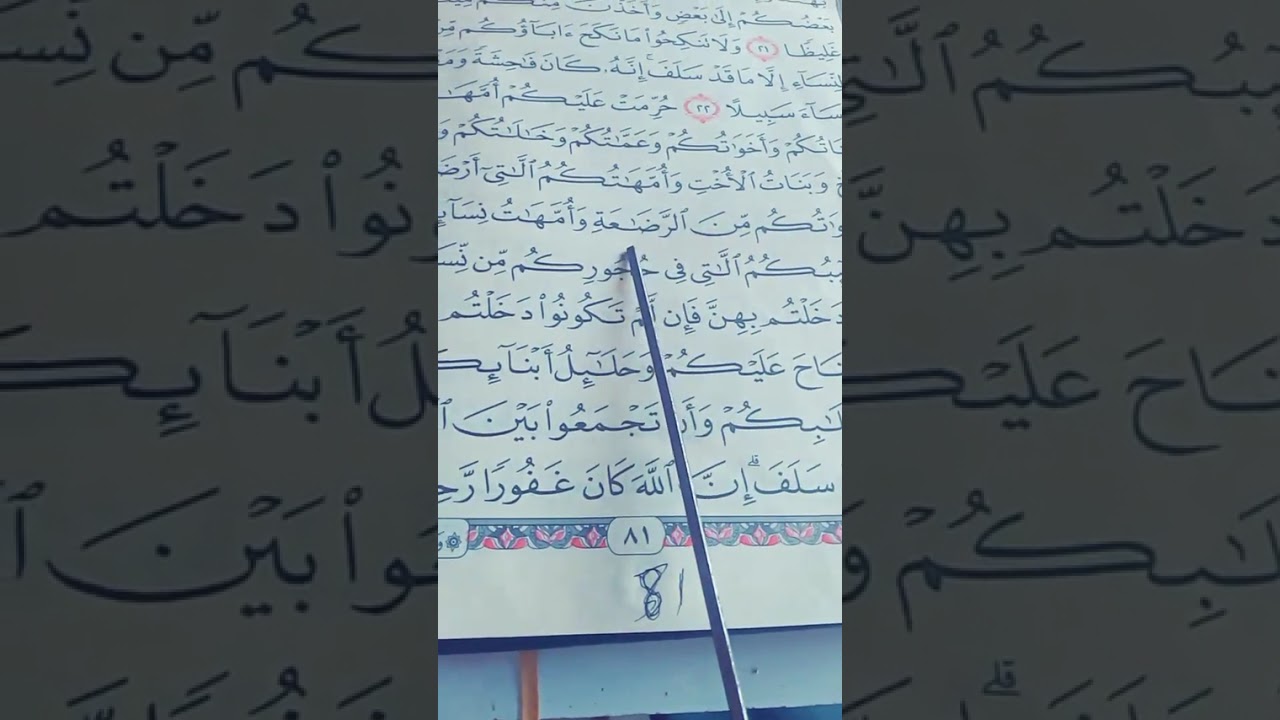 بَعْضُكُمْ إِلَىٰ بَعْضٍ وَأَخَذْنَ مِنكُم
غَلِيظًا ٢١ وَلَا تَنكِحُوا۟ مَا نَكَحَ ءَابَآؤُكُم مِّنَ
لنِّسَآءِ إِلَّا مَا قَدْ سَلَفَ ۚ إِنَّهُۥ كَانَ فَـٰحِشَةً وَمَ
سَآءَ سَبِيلًا ٢٢ حُرِّمَتْ عَلَيْكُمْ أُمَّهَـٰ
اتُكُمْ وَأَخَوَٰتُكُمْ وَعَمَّـٰتُكُمْ وَخَـٰلَـٰتُكُمْ وَ
خِ وَبَنَاتُ ٱلْأُخْتِ وَأُمَّهَـٰتُكُمُ ٱلَّـٰتِىٓ أَرْضَ
وَٰتُكُم مِّنَ ٱلرَّضَـٰعَةِ وَأُمَّهَـٰتُ نِسَآئِ
ئِبُكُمُ ٱلَّـٰتِى فِى حُجُورِكُم مِّن نِّسَ
دَخَلْتُم بِهِنَّ فَإِن لَّمْ تَكُونُوا۟ دَخَلْتُم
نَاحَ عَلَيْكُمْ وَحَلَـٰٓئِلُ أَبْنَآئِكُ
لَـٰبِكُمْ وَأَن تَجْمَعُوا۟ بَيْنَ ٱ
سَلَفَ ۗ إِنَّ ٱللَّهَ كَانَ غَفُورًا رَّحِ
٨١
81